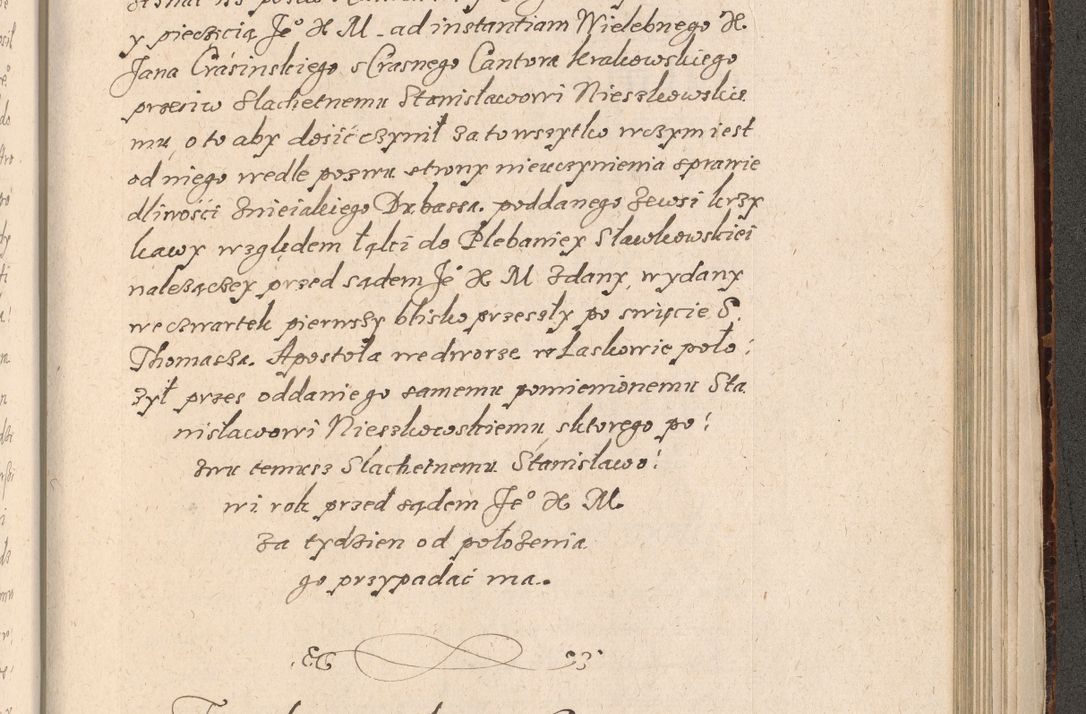 y pieczęcią Je° X M ad instantiam Wielebnego X.
Jana Crasinskiego s Crasnego Cantora Krakowskiego
przeciw Slachetnemu Stanisławowi Nieszkowskie
mu, o to aby dosić czynił za to wszytko w czym iest
od niego wedle pozwu strony nieuczynienia sprawie
dliwości z nieiakiego Drbassa. poddanego ze wsi krzy
kawy względem łąki do Plebaniey Sławkowskiei
należączey przed sądem Je° X M zdany, wydany
we czwartek pierwszy blisko przeszły po swięcie S.
Thomasza. Apostoła we dworze w Łaskowie poło:
zył przes oddanie go samemu pomienionemu Sta
nisławowi Nieszkowskiemu, s ktorego po:
zwu temusz Slachetnemu Stanisławo:
wi rok przed sądem Je° X M.
za tydzien od położenia
go przypadać ma.